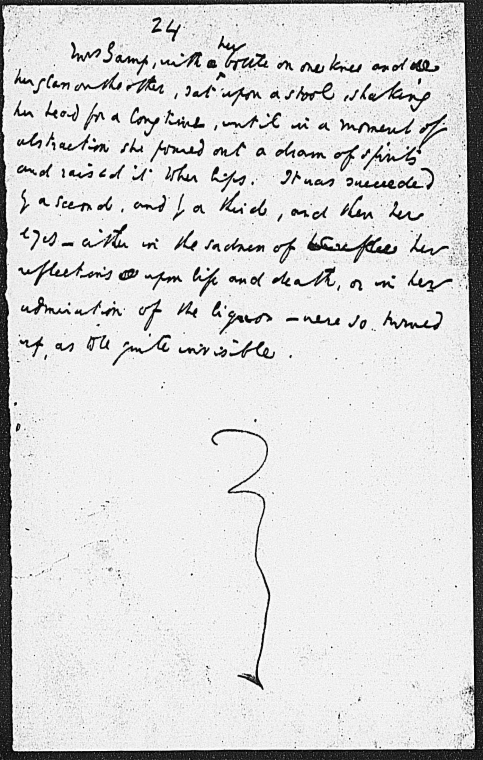 24
Mrs Gamp, with a her bottle on one knee and
her glass on the other, sat upon a stool, shaking
her head for a long time, until in a moment of
abstraction she poured out a dram of spirits
and raised it to her lips. It was succeeded
by a second, and by a third, and then her
eyes — either in the sadness of her
reflections upon life and death, or in her
admiration of the liquor — were so turned
up, as to be quite invisible.